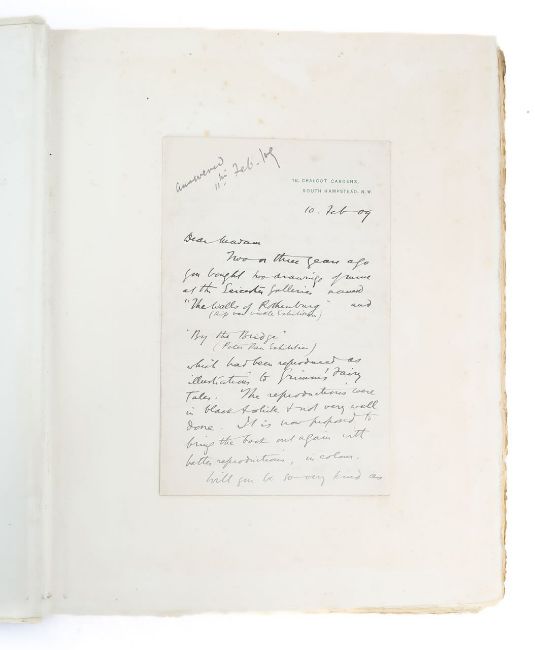 answered
11th Feb. /09
16, CHALCOT GARDENS,
SOUTH HAMPSTEAD, N.W.
10. Feb 09
Dear Madam
Two or three years ago
you bought two drawings of mine
at the Leicester Galleries named
"The Walls of Rothenburg" and
(Rip van Winkle Exhibition)
"By the Bridge"
(Peter Pan Exhibition)
which had been reproduced as
illustrations to Grimm's Fairy
Tales. The reproductions were
in black & white & not very well
done. It is now proposed to
bring the book out again with
better reproductions, in colour.
Will you be so very kind as